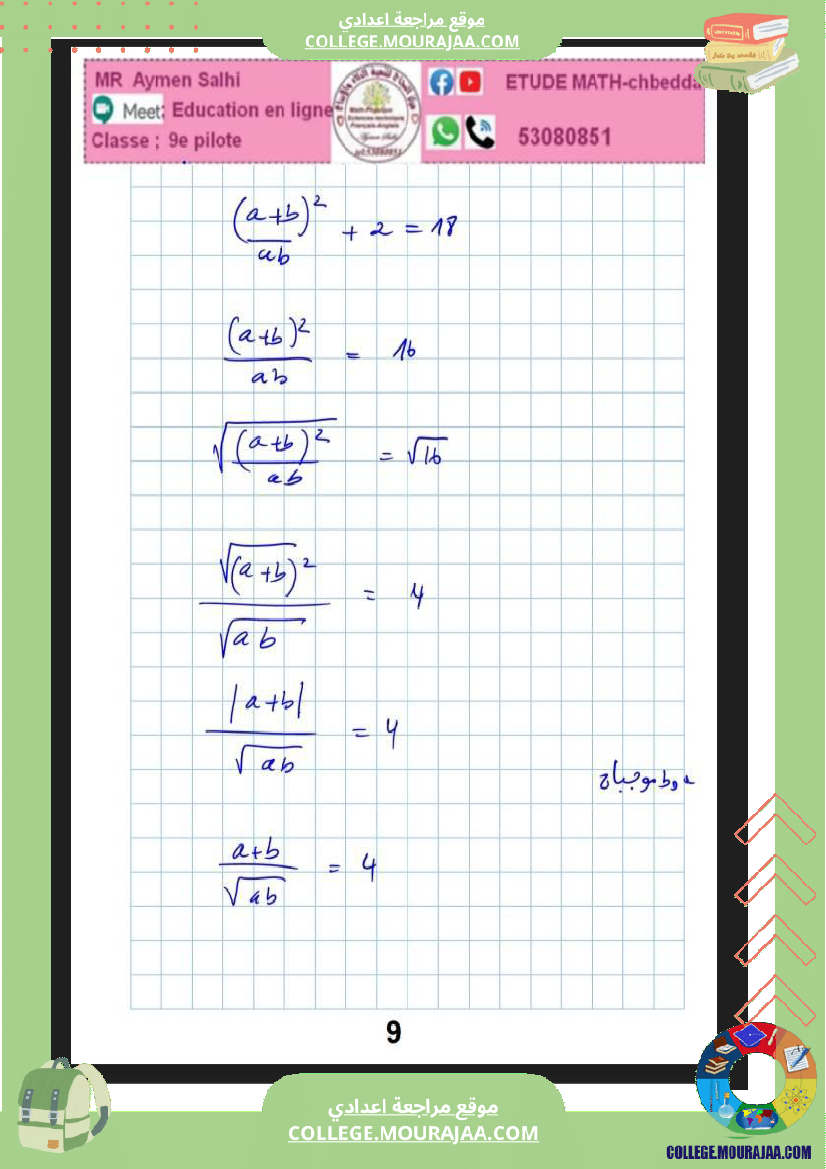 موقع مراجعة اعدادي
COLLEGE.MOURAJAA.COM
MR Aymen Salhi
Meet: Education en ligne
Classe ; 9e pilote
ETUDE MATH-chbedda
53080851
(a+b)²/ab + 2 = 18
(a+b)²/ab = 16
√((a+b)²/ab) = √16
√(a+b)²/√ab = 4
|a+b|/√ab = 4
a و b موجبان
a+b/√ab = 4
9
موقع مراجعة اعدادي
COLLEGE.MOURAJAA.COM
COLLEGE.MOURAJAA.COM